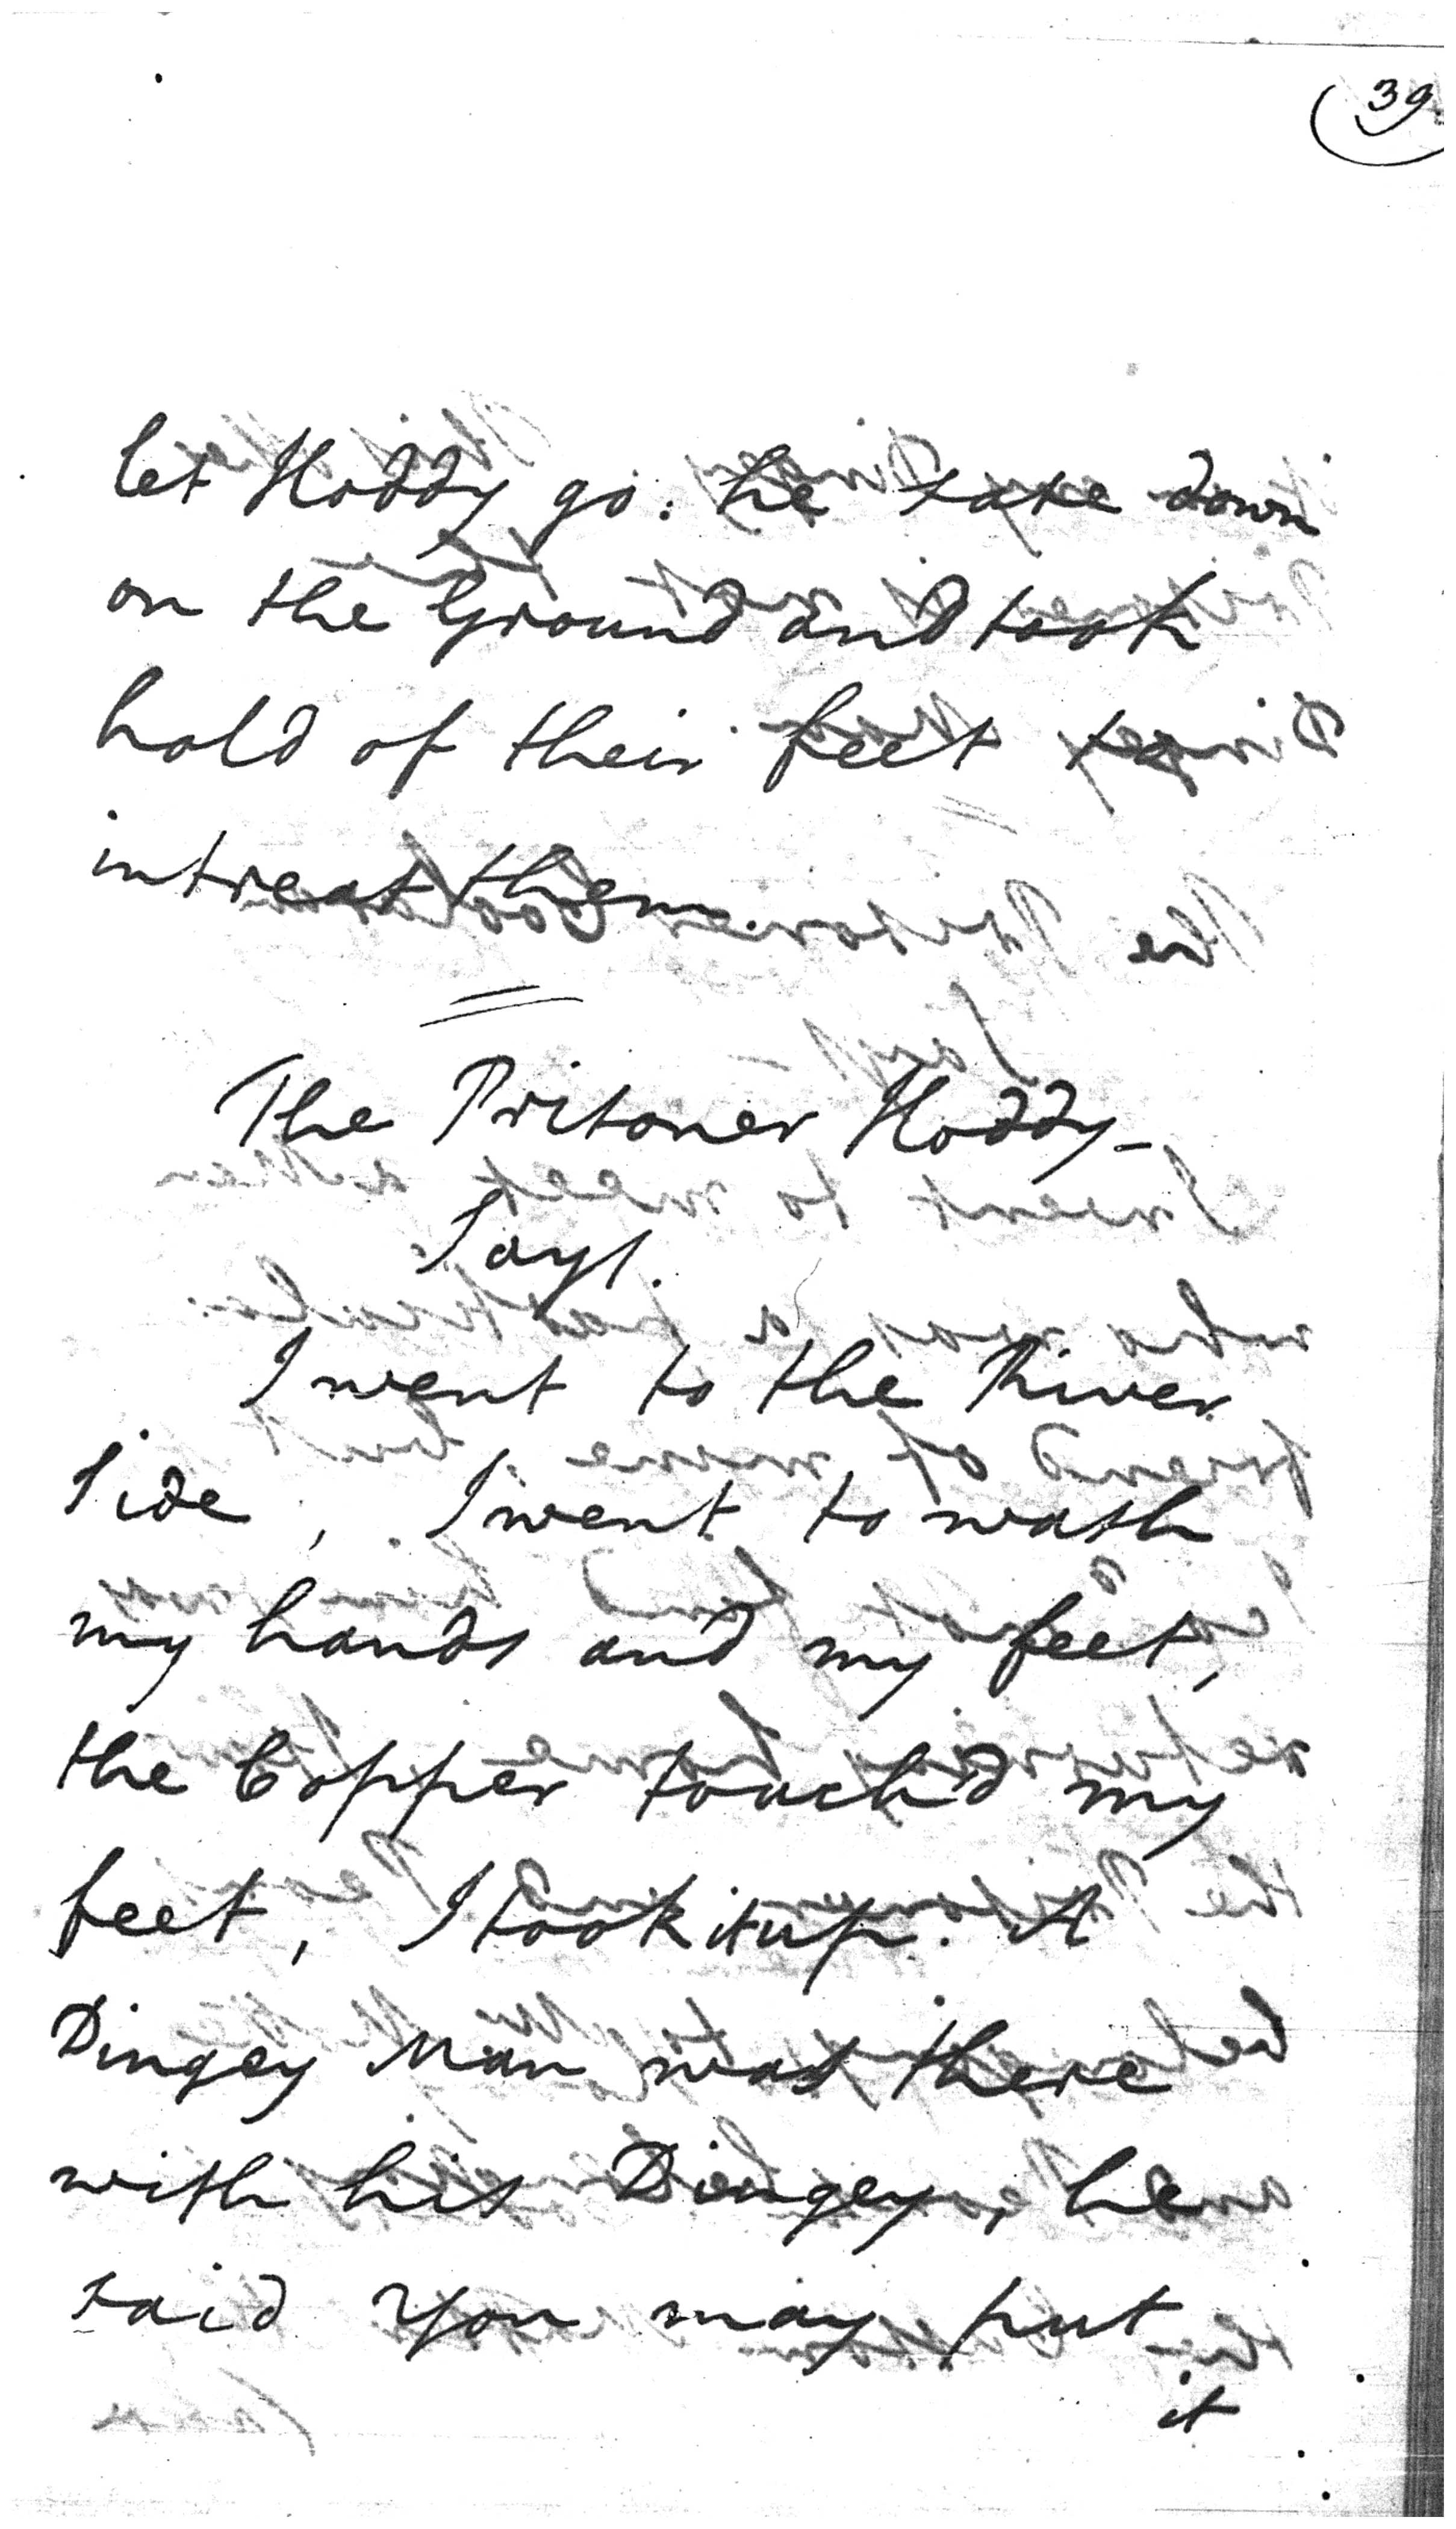 39.
let Hoddy go: he sate down
on the Ground and took
hold of their feet to
intreat them.
The Prisoner Hoddy-
Says.
I went to the River
side, I went to wash
my hands and my feet,
the Copper touch'd my
feet, I took it up. A
Dingey Man was there
with his Dingey, he
said you may put
it